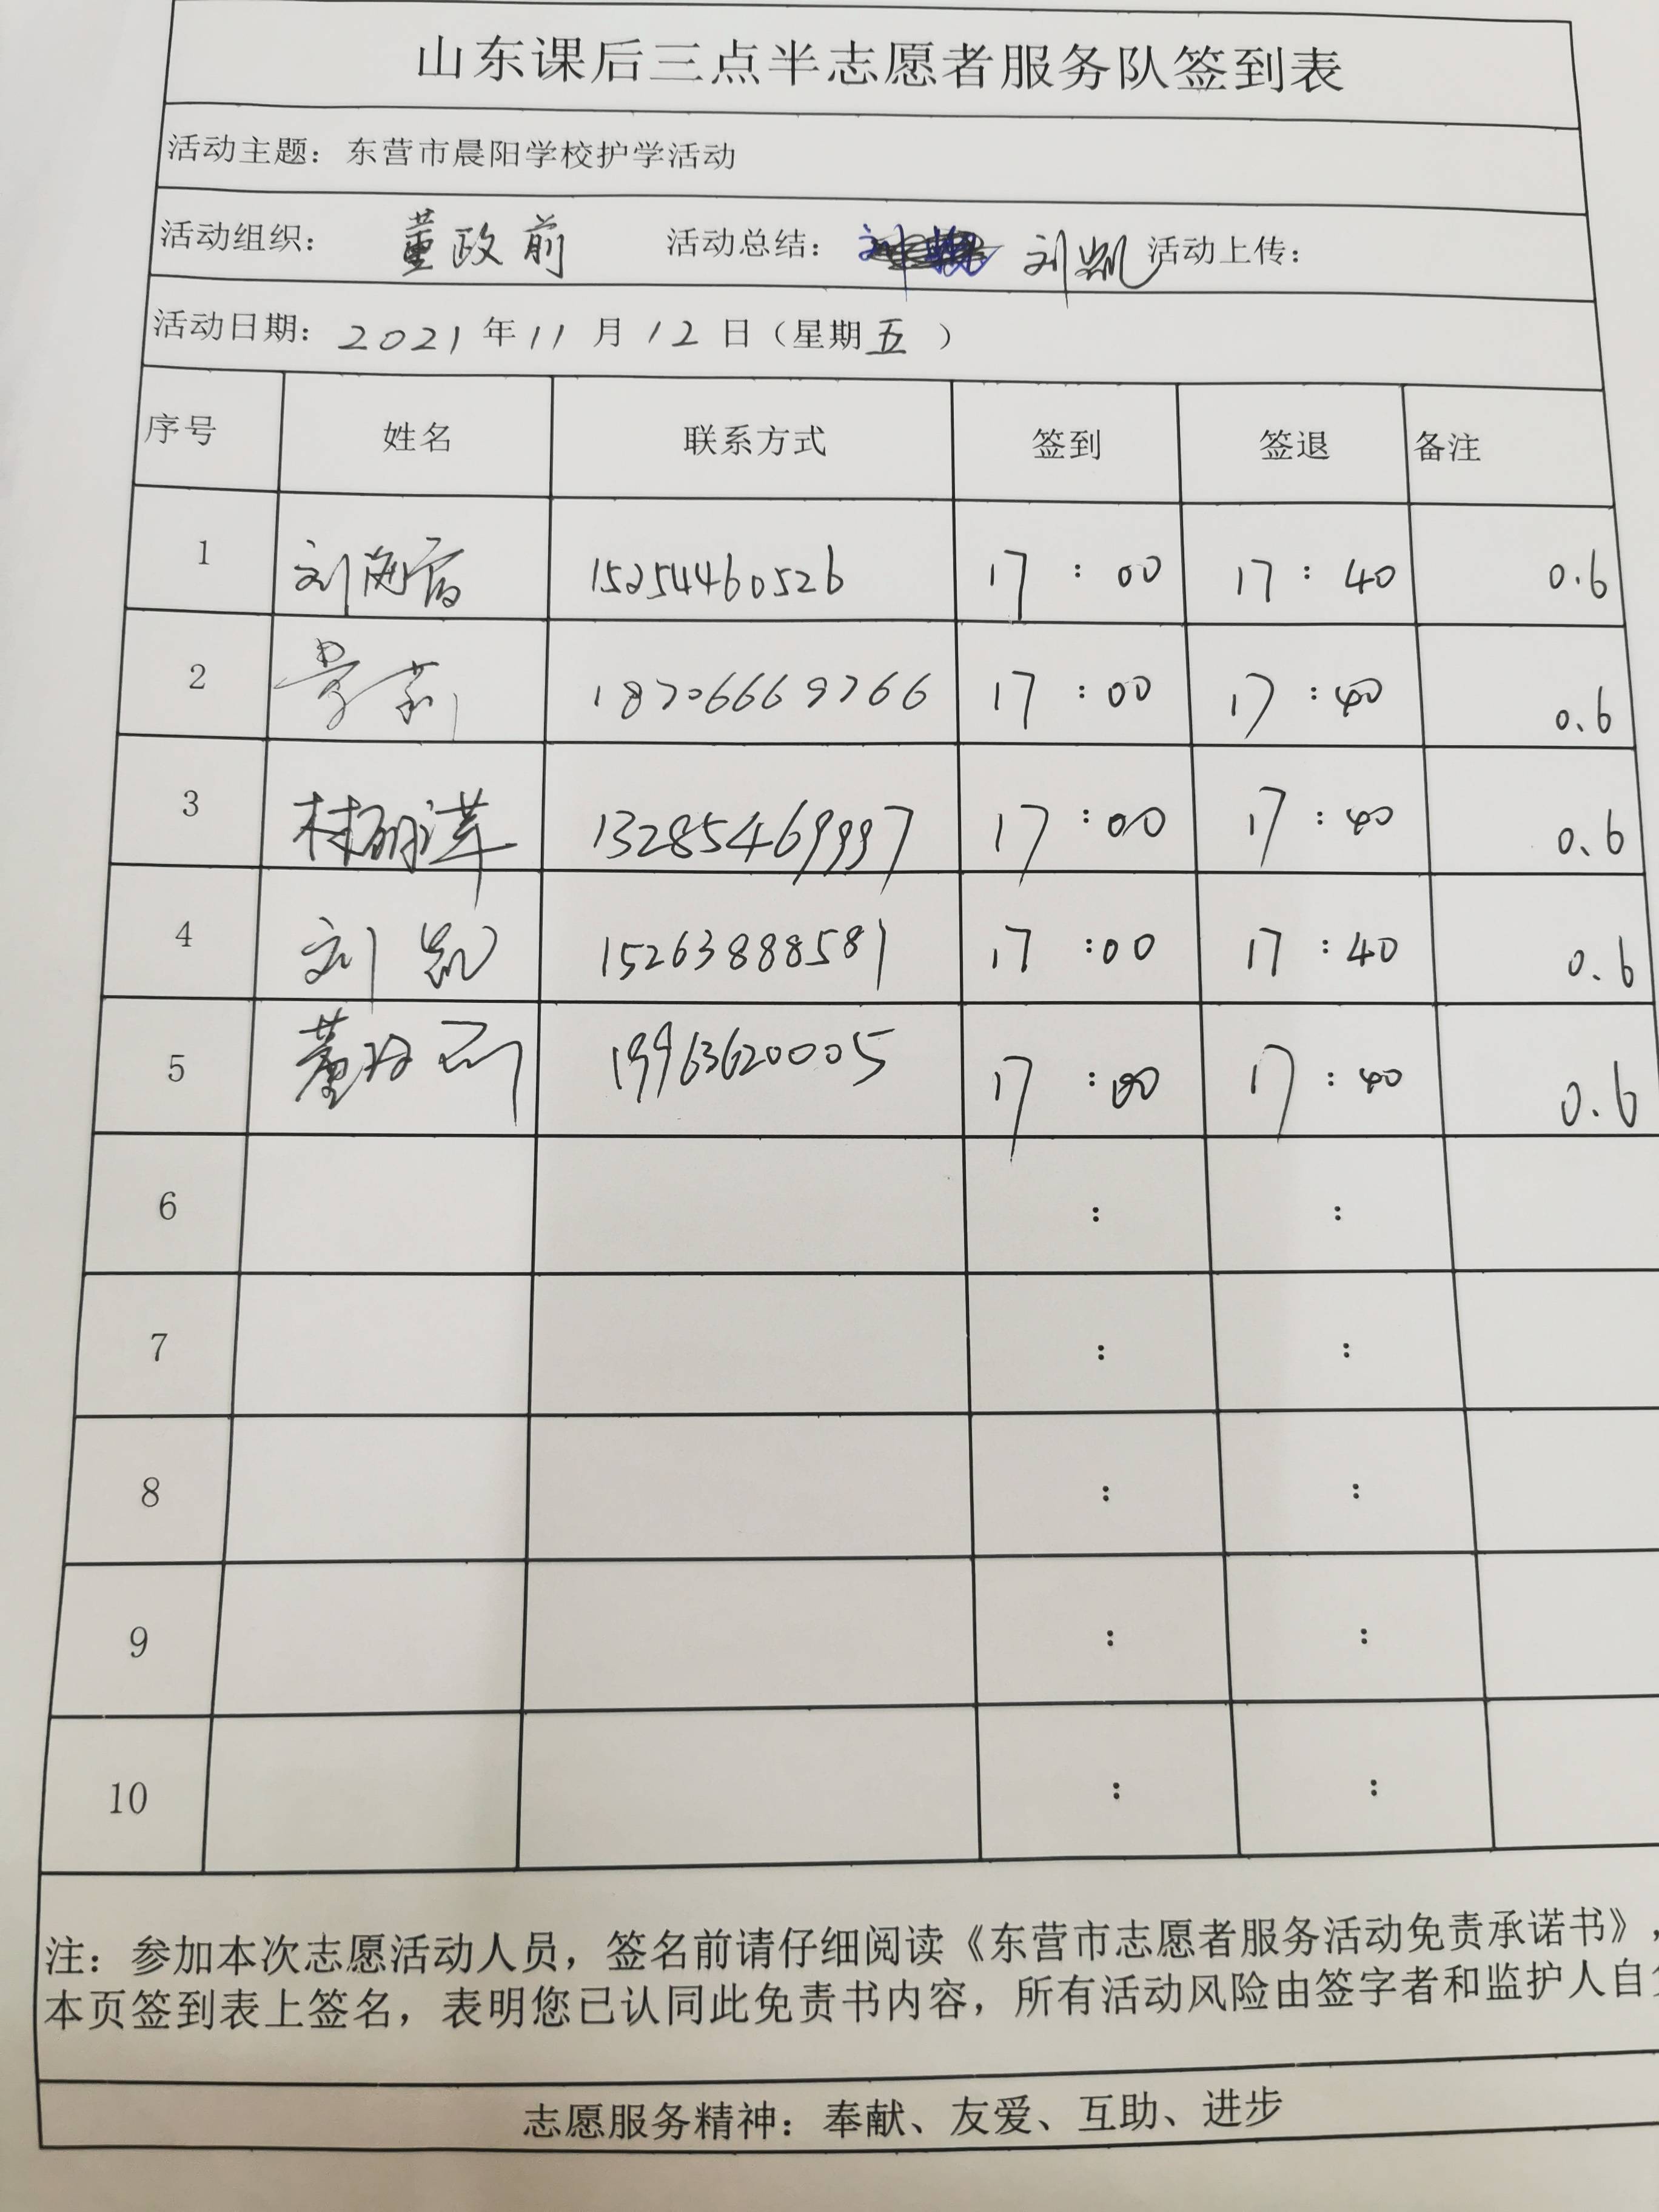 山东课后三点半志愿者服务队签到表
活动主题：东营市晨阳学校护学活动
活动组织： 董政前 活动总结： 刘凯 活动上传：
活动日期：2021年11月12日（星期五）
序号 姓名 联系方式 签到 签退 备注
1 15254460526 17：00 17：40 0.6
2 18706669766 17：00 17：40 0.6
3 13285469997 17：00 17：40 0.6
4 刘凯 15263888581 17：00 17：40 0.6
5 董政前 19963620005 17：00 17：40 0.6
6 ： ：
7 ： ：
8 ： ：
9 ： ：
10 ： ：
注：参加本次志愿活动人员，签名前请仔细阅读《东营市志愿者服务活动免责承诺书》，
本页签到表上签名，表明您已认同此免责书内容，所有活动风险由签字者和监护人自
志愿服务精神：奉献、友爱、互助、进步